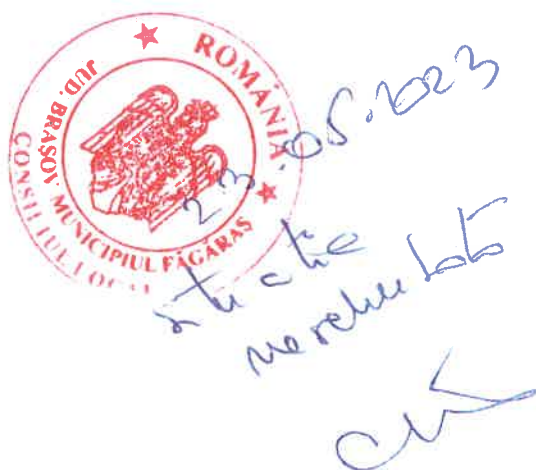 ROMÂNIA
JUD. BRAȘOV
MUNICIPIUL FĂGĂRAȘ
CONSILIUL LOCAL
23.05.2023
situație
neschimbată